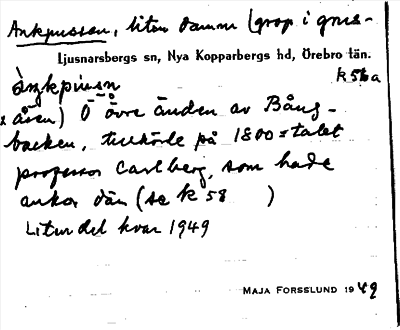 Ankpussen, liten damm (grop i grus-
Ljusnarsbergs sn, Nya Kopparbergs hd, Örebro län.
k 56a
åsen) Ö övre änden av Bång-
backen, tillhörde på 1800=talet
professor Carlberg, som hade
ankor där (se k 58 )
Liten del kvar 1949
MAJA FORSSLUND 1949